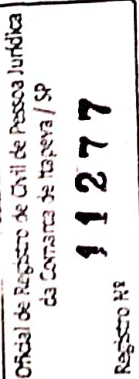 Oficial de Registro de Civil de Pessoa Jurídica
da Comarca de Itapeva / SP
11277
Registro Nº